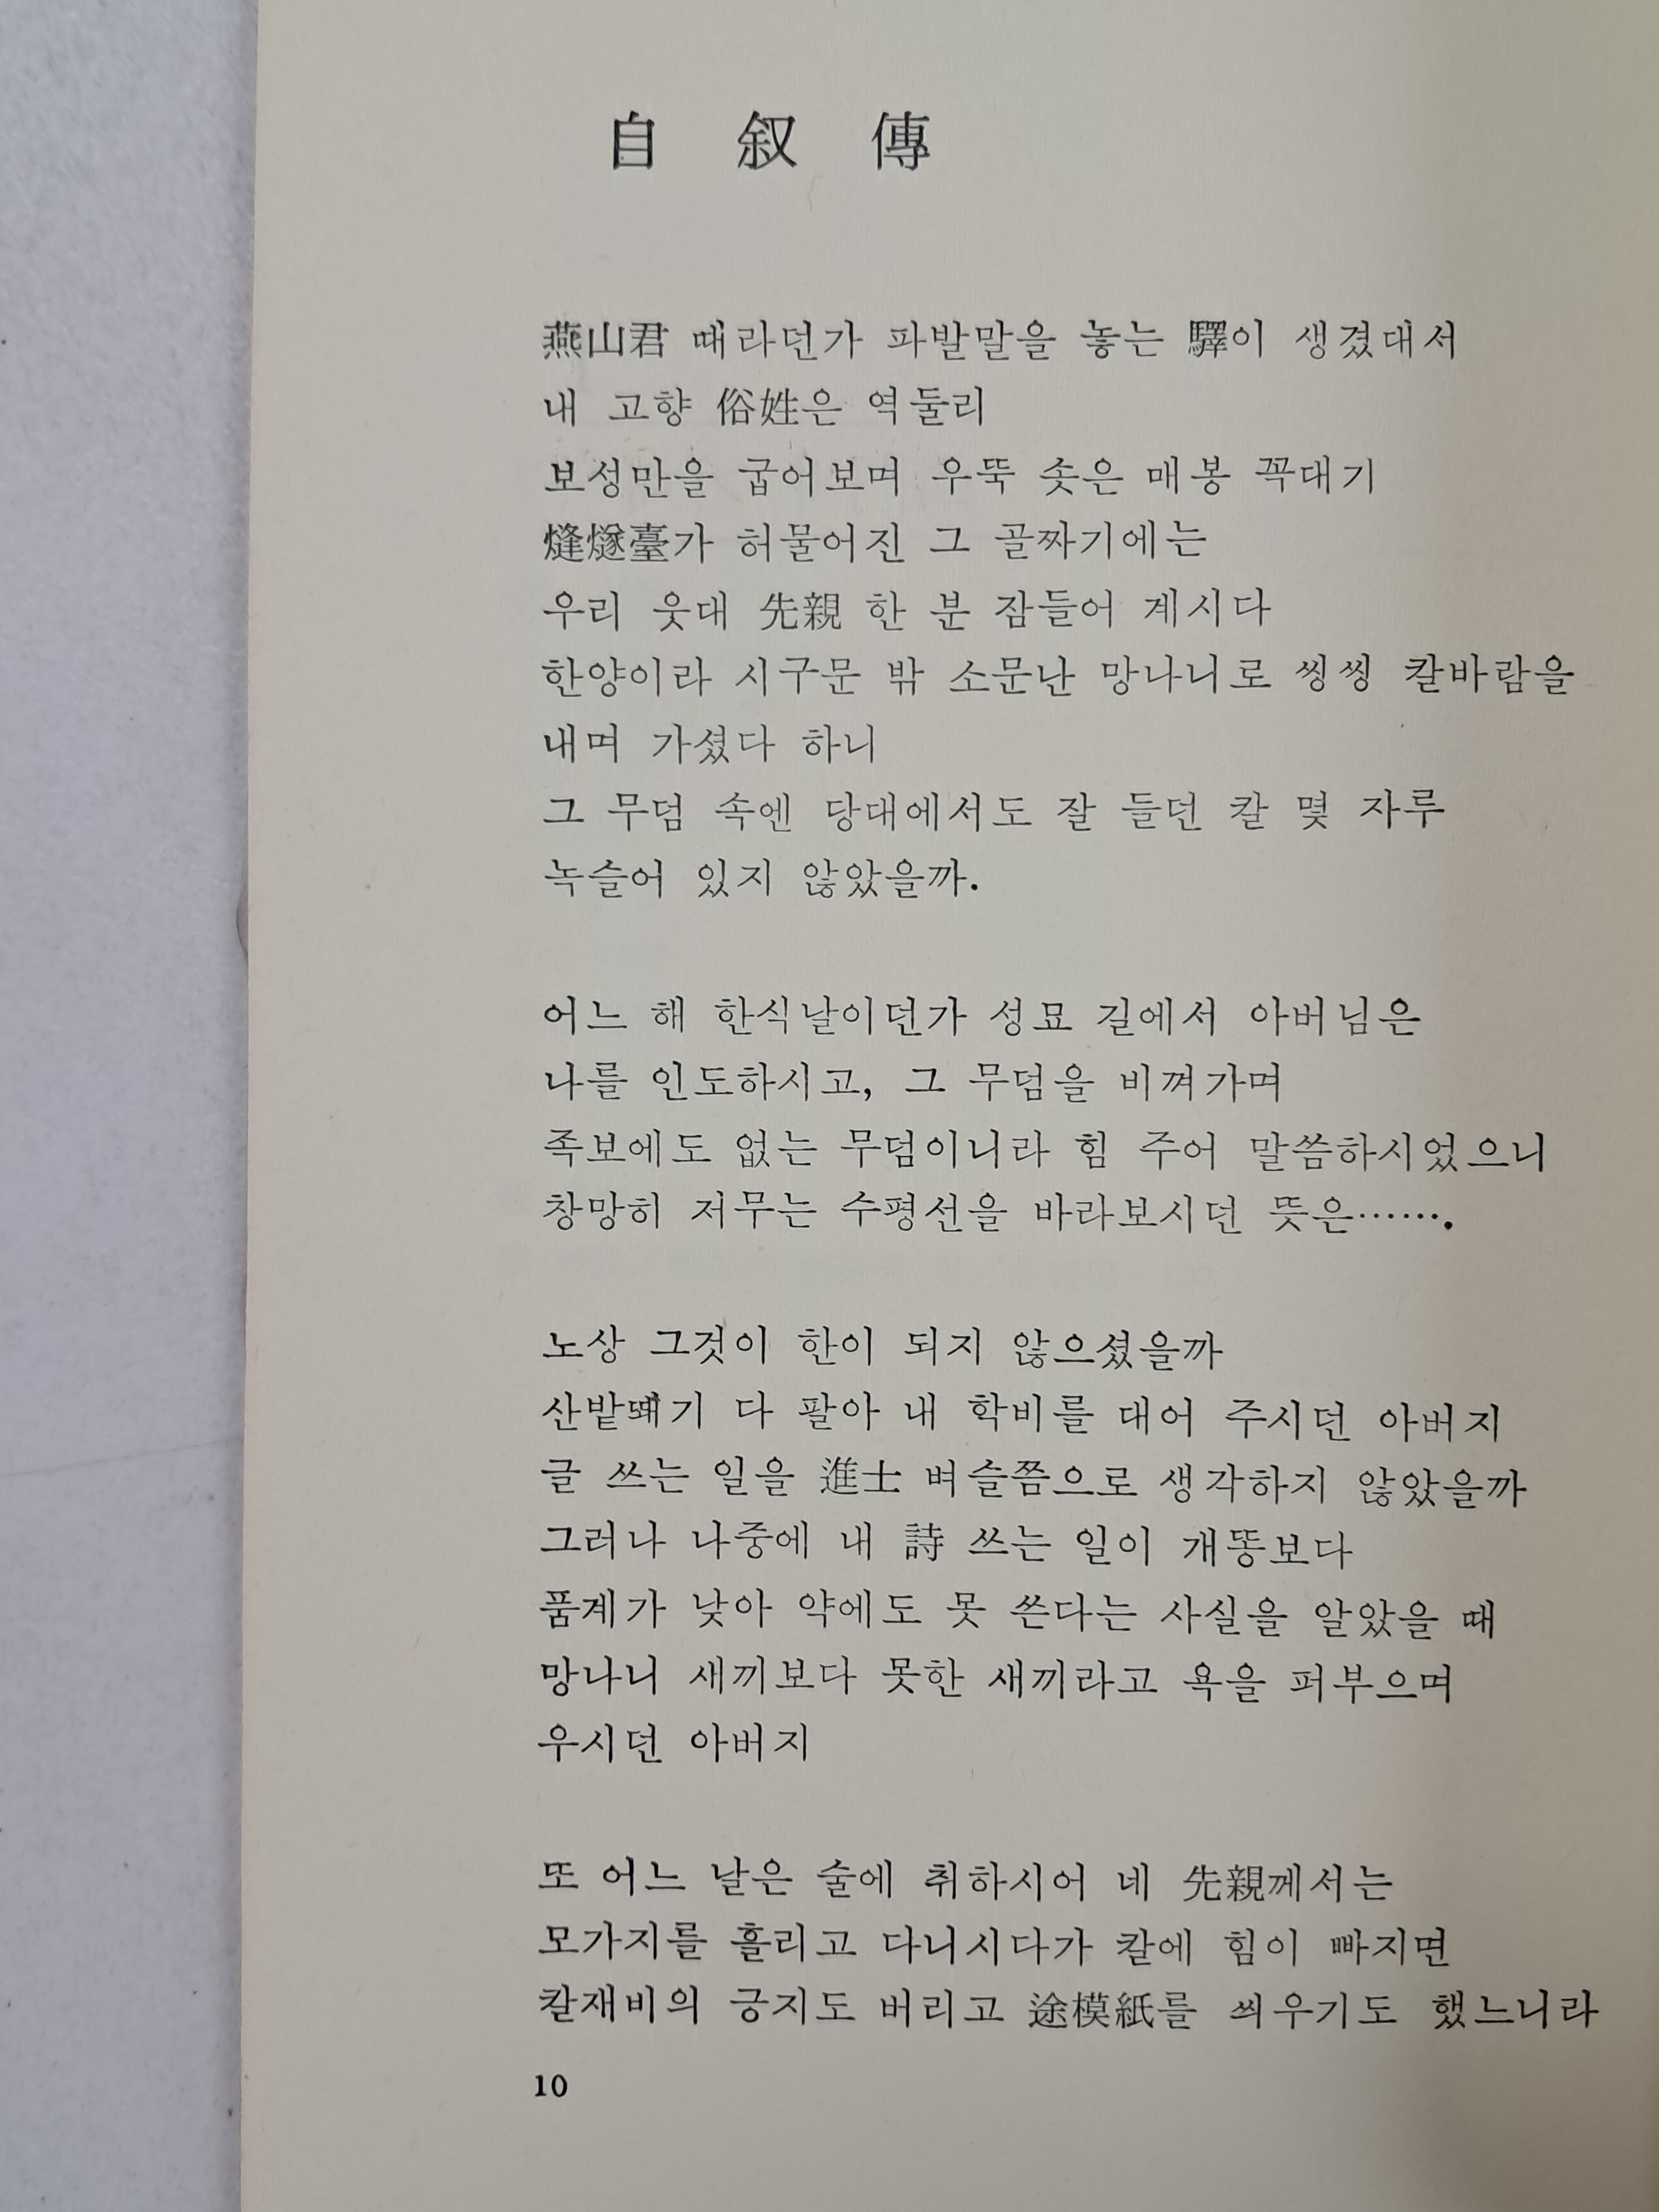 自叙傳
燕山君 때라던가 파발말을 놓는 驛이 생겼대서
내 고향 俗姓은 역둘리
보성만을 굽어보며 우뚝 솟은 매봉 꼭대기
熢燧臺가 허물어진 그 골짜기에는
우리 웃대 先親 한 분 잠들어 계시다
한양이라 시구문 밖 소문난 망나니로 씽씽 칼바람을
내며 가셨다 하니
그 무덤 속엔 당대에서도 잘 들던 칼 몇 자루
녹슬어 있지 않았을까.
어느 해 한식날이던가 성묘 길에서 아버님은
나를 인도하시고, 그 무덤을 비껴가며
족보에도 없는 무덤이니라 힘 주어 말씀하시었으니
창망히 저무는 수평선을 바라보시던 뜻은…….
노상 그것이 한이 되지 않으셨을까
산밭뙈기 다 팔아 내 학비를 대어 주시던 아버지
글 쓰는 일을 進士 벼슬쯤으로 생각하지 않았을까
그러나 나중에 내 詩 쓰는 일이 개똥보다
품계가 낮아 약에도 못 쓴다는 사실을 알았을 때
망나니 새끼보다 못한 새끼라고 욕을 퍼부으며
우시던 아버지
또 어느 날은 술에 취하시어 네 先親께서는
모가지를 흘리고 다니시다가 칼에 힘이 빠지면
칼재비의 긍지도 버리고 途模紙를 씌우기도 했느니라
10